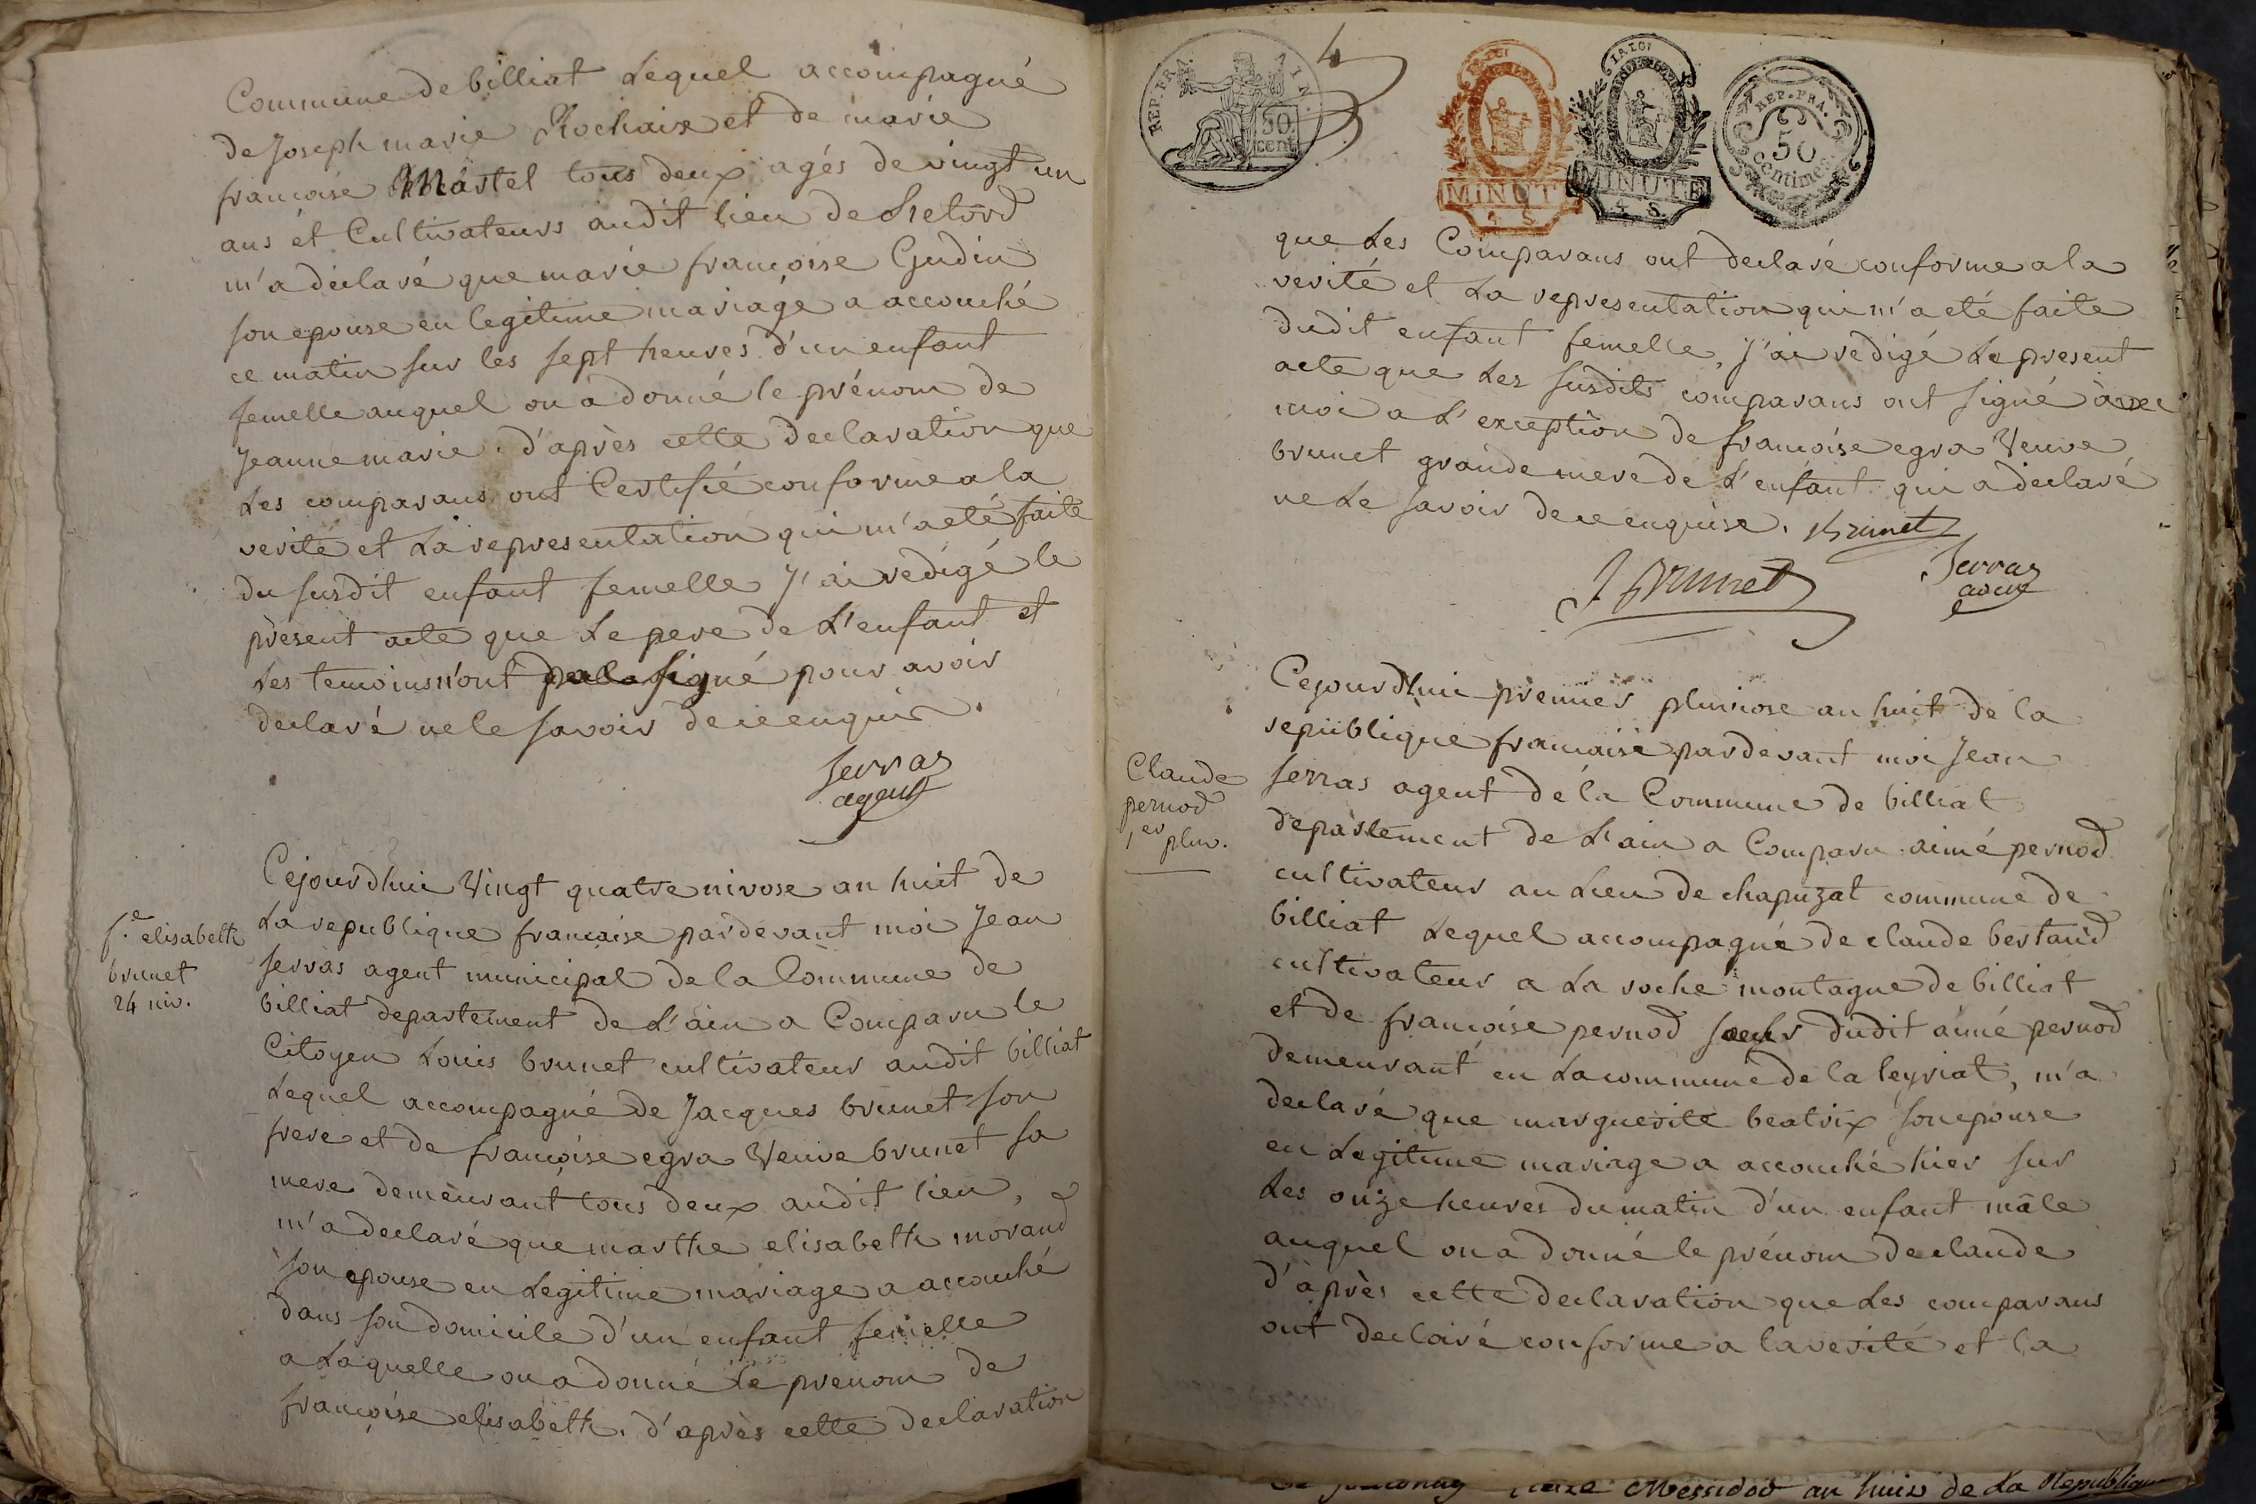 Commune de billiat Lequel accompagné
de Joseph marie Rochaix et de marie
francoise Martel tous deux agés de vingt un
ans et Cultivateurs audit lieu de Retord
m'a déclaré que marie françoise Gudin
son epouse en legitime mariage a accouché
ce matin sur les sept heures d'un enfant
femelle auquel on a donné le prénom de
Jeanne marie. d'après cette declaration que
Les comparans ont Certifié conforme a la
verité et La representation qui m'a eté faite
du susdit enfant femelle J'ai redigé le
present acte que Le pere de L'enfant et
Les temoins n'ont pas signé pour avoir
declaré ne le savoir de ce enquis.
Serras
agent
fse elisabeth
brunet
24 niv.
Cejourdhui Vingt quatre nivose an huit de
La republique francaise pardevant moi Jean
serras agent municipal de la Commune de
billiat departement de L'ain a Comparu le
Citoyen Louis brunet cultivateur audit billiat
Lequel accompagné de Jacques brunet son
frere et de françoise egra Veuve brunet sa
mere demeurant tous deux audit lieu,
m'a declaré que marthe elisabeth morand
son epouse en Legitime mariage a accouché
dans son domicile d'un enfant femelle
a Laquelle on a donné le prenom de
françoise elisabeth. d'après cette declaration
4
REP. FRA. AIN.
50
cent
LA LOI
MINUTE
4 S.
LA LOI
MINUTE
4 S.
REP. FRA.
50
centimes
que Les Comparans ont declaré conforme a la
verité et La representation qui m'a eté faite
dudit enfant femelle, J'ai redigé Le present
acte que Les susdits comparans ont signé avec
moi a L'exception de francoise egra Veuve
brunet grande mere de L'enfant qui a declaré
ne Le savoir de ce enquise. Brunet
J Brunet
Serras
agent
Claude
pernod
1er pluv.
Cejourdhui premier pluviose an huit de la
republique francaise pardevant moi Jean
serras agent de la Commune de billiat
departement de L'ain a Comparu aimé pernod
cultivateur au Lieu de chapuzat commune de
billiat Lequel accompagné de claude bertand
cultivateur a La roche montagne de billiat
et de françoise pernod soeur dudit aimé pernod
demeurant en La commune de la leyriat, m'a
declaré que marguerite beatrix son epouse
en Legitime mariage a accouché hier sur
Les onze heures du matin d'un enfant mâle
auquel on a donné le prénom de claude
d'après cette declaration que Les comparans
ont declaré conforme a la verité et la
Messidor an huit de La Republique